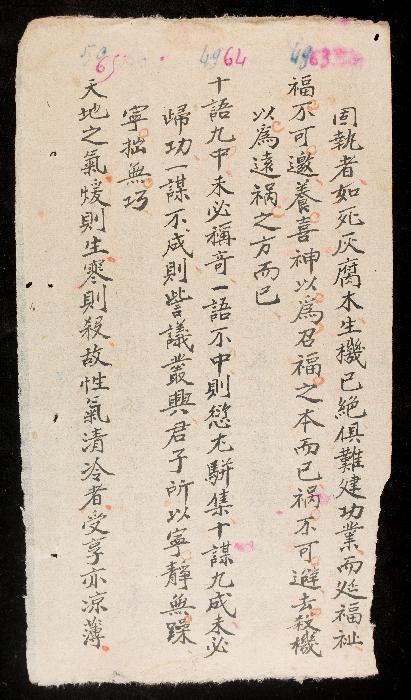 63
固執者如死灰腐木生機已絕俱難建功業而延福祉
福不可邀養喜神以為召福之本而已禍不可避去殺機
以為遠禍之方而已
64
十語九中未必稱奇一語不中則愆尤駢集十謀九成未必
歸功一謀不成則訾議叢興君子所以寧靜無躁
寧拙無巧
65
天地之氣煖則生寒則殺故性氣清冷者受享亦凉薄